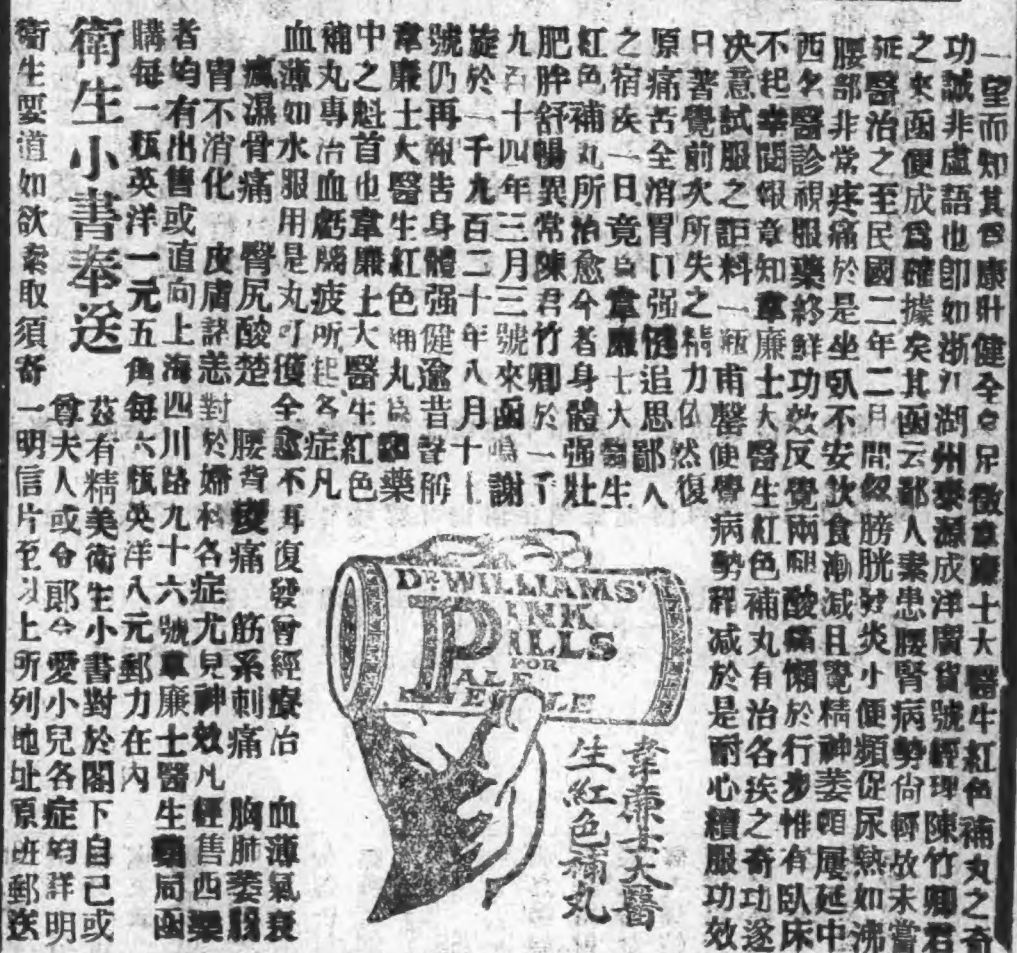 一望而知其爲康壯健全自足徵韋廉士大醫生紅色補丸之奇
功誠非虛語也卽如浙江湖州泰源成洋廣貨號經理陳竹卿君
之來函便成爲確據矣其函云鄙人素患腰腎病勢尙輕故未嘗
延醫治之至民國二年二月間忽膀胱發炎小便頻促尿熱如沸
腰部非常疼痛於是坐臥不安飲食漸減且覺精神萎頓屢延中
西名醫診視服藥終鮮功效反覺兩腿酸痛懶於行步惟有臥床
不起幸閱報章知韋廉士大醫生紅色補丸有治各疾之奇功遂
决意試服之詎料一瓶甫罄便覺病勢稍减於是耐心續服功效
日著覺前次所失之精力依然復
原痛苦全消胃口强健追思鄙人
之宿疾一日竟爲韋廉士大醫生
紅色補丸所治愈今者身體强壯
肥胖舒暢異常陳君竹卿於一千
九百十四年三月三號來函鳴謝
旋於一千九百二十年八月十
號仍再報告身體强健逾昔聲稱
韋廉士大醫生紅色補丸爲藥
中之魁首也韋廉士大醫生紅色
補丸專治血虧腦疲所起各症凡
血薄如水服用是丸可獲全愈不再復發曾經療治 血薄氣衰
瘋濕骨痛 臀尻酸楚 腰背痠痛 筋系刺痛 胸肺萎弱
胃不消化 皮膚諸恙對於婦科各症尤見神效凡經售西藥
者均有出售或直向上海四川路九十六號韋廉士醫生藥局函
購每一瓶英洋一元五角每六瓶英洋八元郵力在內
衛生小書奉送
茲有精美衛生小書對於閣下自己或
尊夫人或令郎令愛小兒各症均詳明
衛生要道如欲索取須寄一明信片至以上所列地址原班郵送
DR WILLIAMS'
PINK
PILLS
FOR
PALE
PEOPLE
韋廉士大醫
生紅色補丸